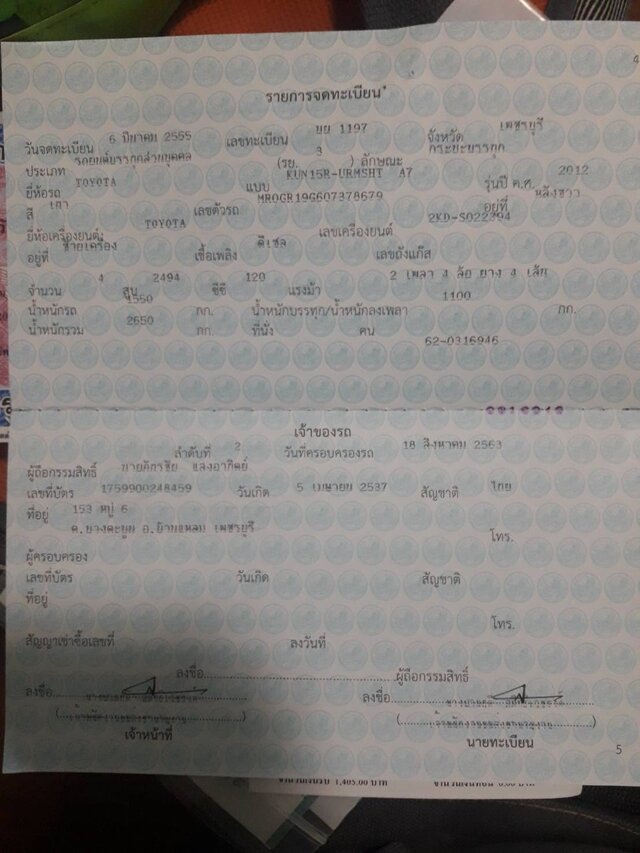 4
รายการจดทะเบียน*
วันจดทะเบียน 6 มีนาคม 2555 เลขทะเบียน ยย 1197 จังหวัด เพชรบุรี
ประเภท รถยนต์บรรทุกส่วนบุคคล (รย. 3 ) ลักษณะ กระบะบรรทุก
ยี่ห้อรถ TOYOTA แบบ KUN15R-URMSHT A7 รุ่นปี ค.ศ. 2012
สี เทา เลขตัวรถ MR0GR19G607378679 อยู่ที่ หลังขวา
ยี่ห้อเครื่องยนต์ TOYOTA เลขเครื่องยนต์ 2KD-S022294
อยู่ที่ ซ้ายเครื่อง เชื้อเพลิง ดีเซล เลขถังแก๊ส
จำนวน 4 สูบ 2494 ซีซี 120 แรงม้า 2 เพลา 4 ล้อ ยาง 4 เส้น
น้ำหนักรถ 1550 กก. น้ำหนักบรรทุก/น้ำหนักลงเพลา 1100 กก.
น้ำหนักรวม 2650 กก. ที่นั่ง คน
62-0316946
เจ้าของรถ
ลำดับที่ 2 วันที่ครอบครองรถ 18 สิงหาคม 2563
ผู้ถือกรรมสิทธิ์ แสงอาทิตย์
เลขที่บัตร 1759900248459 วันเกิด 5 เมษายน 2537 สัญชาติ ไทย
ที่อยู่ 153 หมู่ 6
ต.บางตะบูน อ.บ้านแหลม เพชรบุรี
โทร.
ผู้ครอบครอง
เลขที่บัตร วันเกิด สัญชาติ
ที่อยู่
โทร.
สัญญาเช่าซื้อเลขที่ ลงวันที่
ลงชื่อ ผู้ถือกรรมสิทธิ์
ลงชื่อ ลงชื่อ
เจ้าหน้าที่ นายทะเบียน
5
จำนวนเงินรับ 1,405.00 บาท จำนวนเงินทอน 0.00 บาท